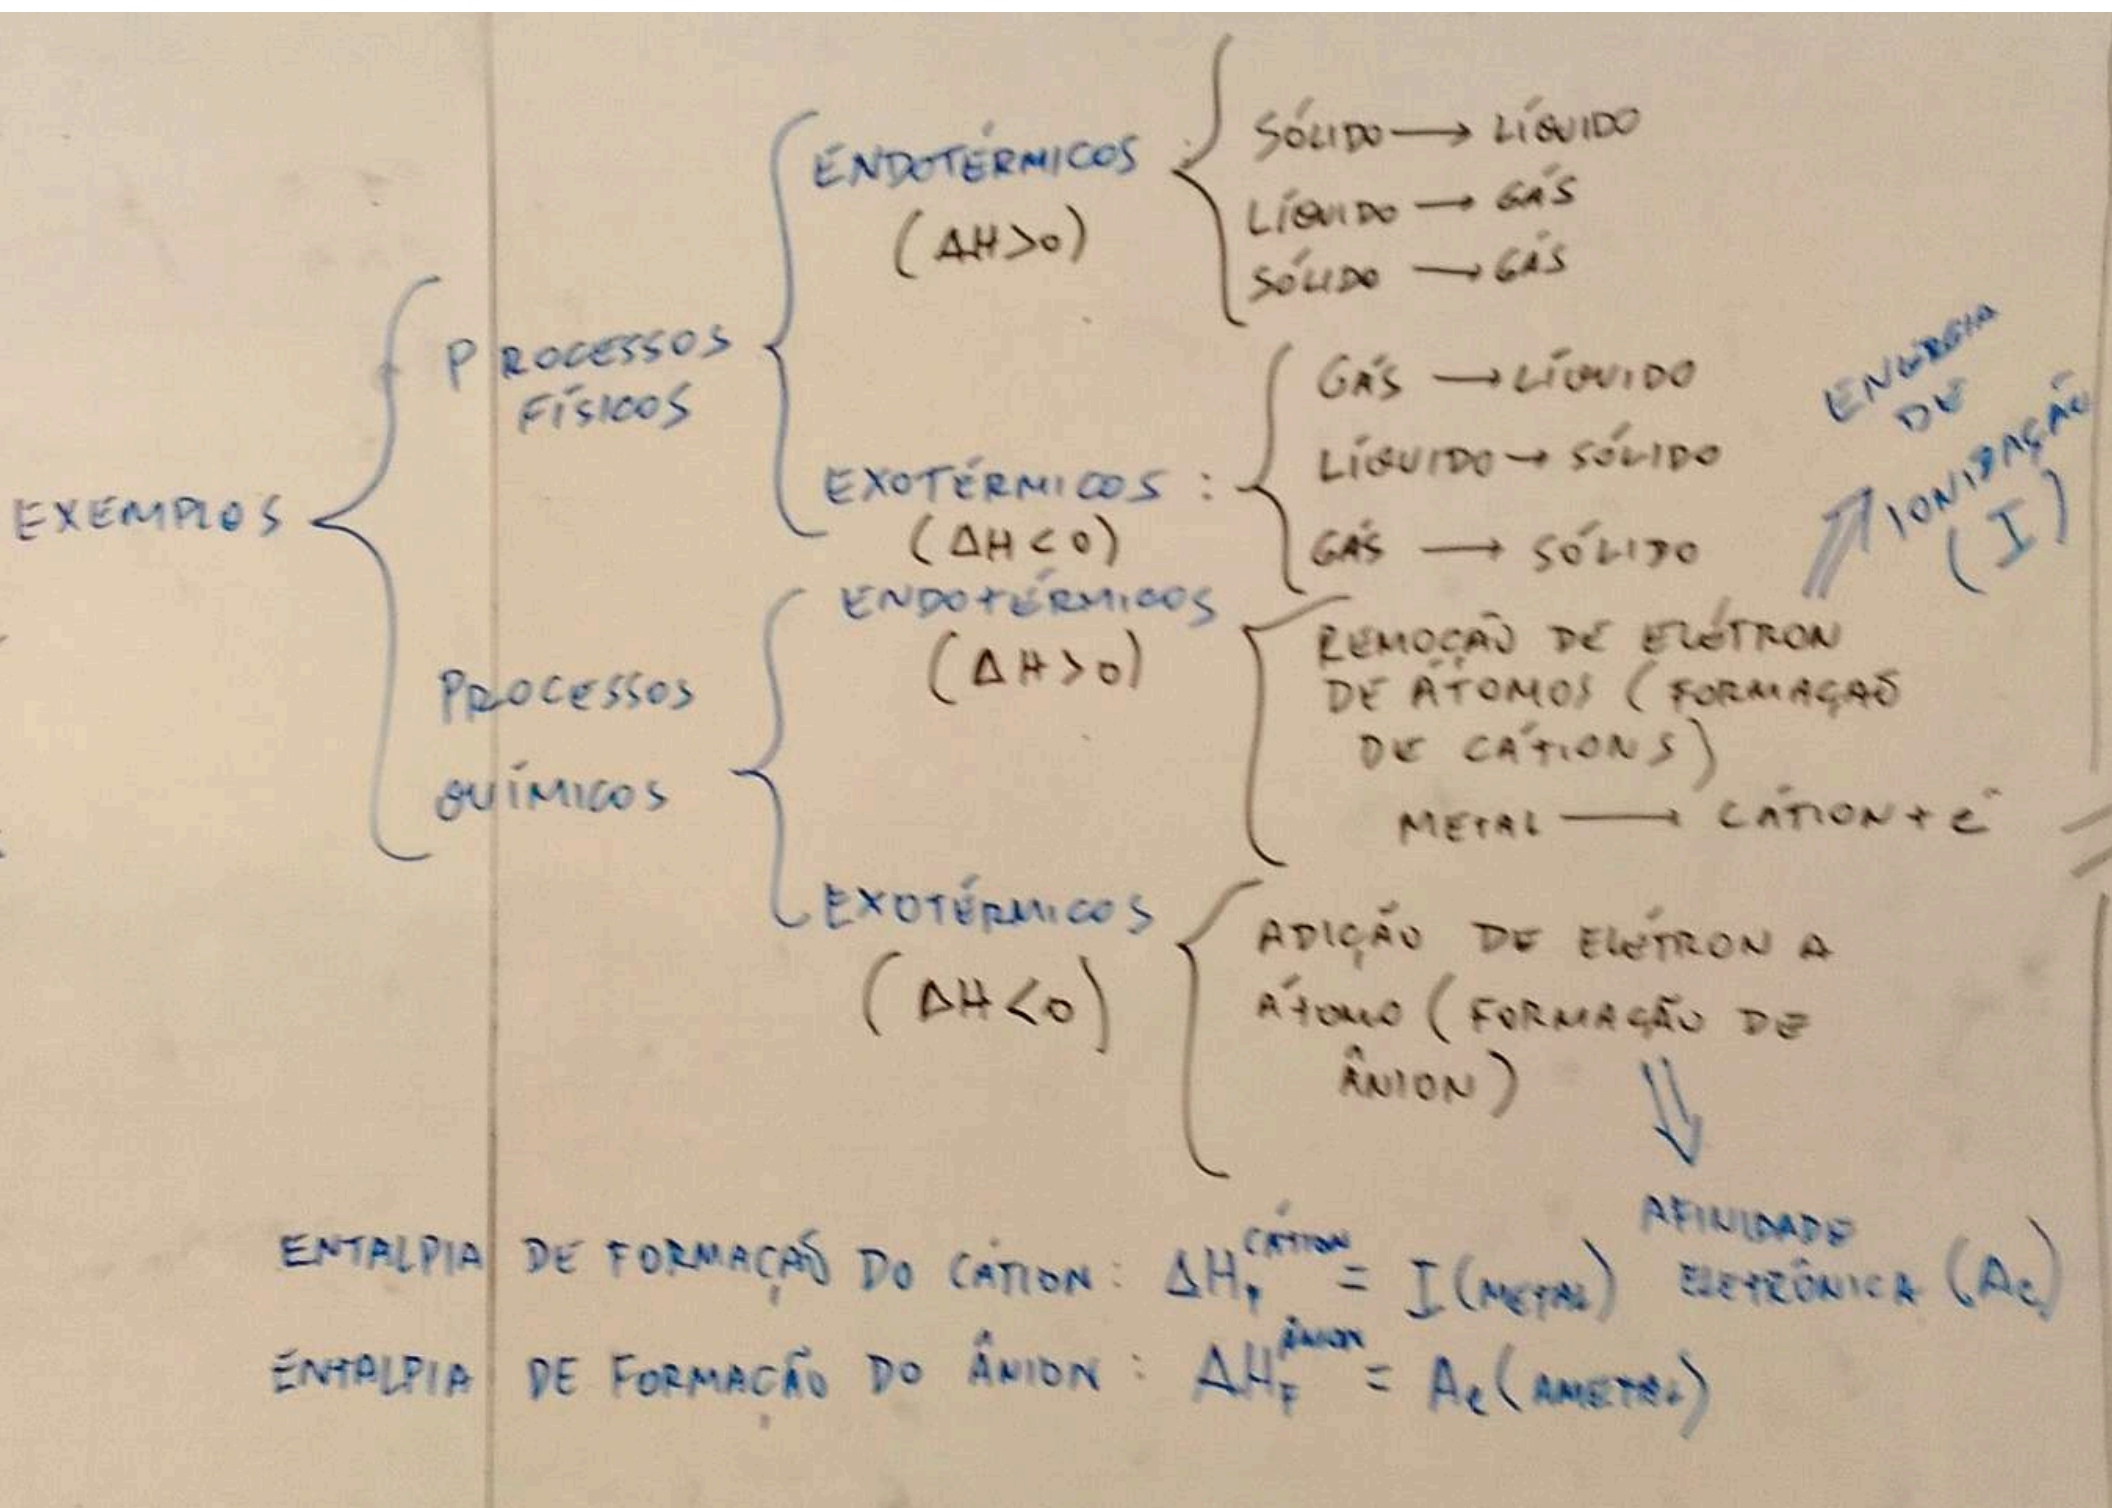 EXEMPLOS
PROCESSOS
FÍSICOS
ENDOTÉRMICOS
(ΔH>0)
SÓLIDO → LÍQUIDO
LÍQUIDO → GÁS
SÓLIDO → GÁS
EXOTÉRMICOS :
(ΔH<0)
GÁS → LÍQUIDO
LÍQUIDO → SÓLIDO
GÁS → SÓLIDO
PROCESSOS
QUÍMICOS
ENDOTÉRMICOS
(ΔH>0)
REMOÇÃO DE ELÉTRON
DE ÁTOMOS (FORMAÇÃO
DE CÁTIONS)
METAL → CÁTION + e⁻
ENERGIA
DE
IONIZAÇÃO
(I)
EXOTÉRMICOS
(ΔH<0)
ADIÇÃO DE ELÉTRON A
ÁTOMO (FORMAÇÃO DE
ÂNION)
AFINIDADE
ELETRÔNICA (Ae)
ENTALPIA DE FORMAÇÃO DO CÁTION : ΔH_F^CÁTION = I (METAL)
ENTALPIA DE FORMAÇÃO DO ÂNION : ΔH_F^ÂNION = Ae (AMETAL)